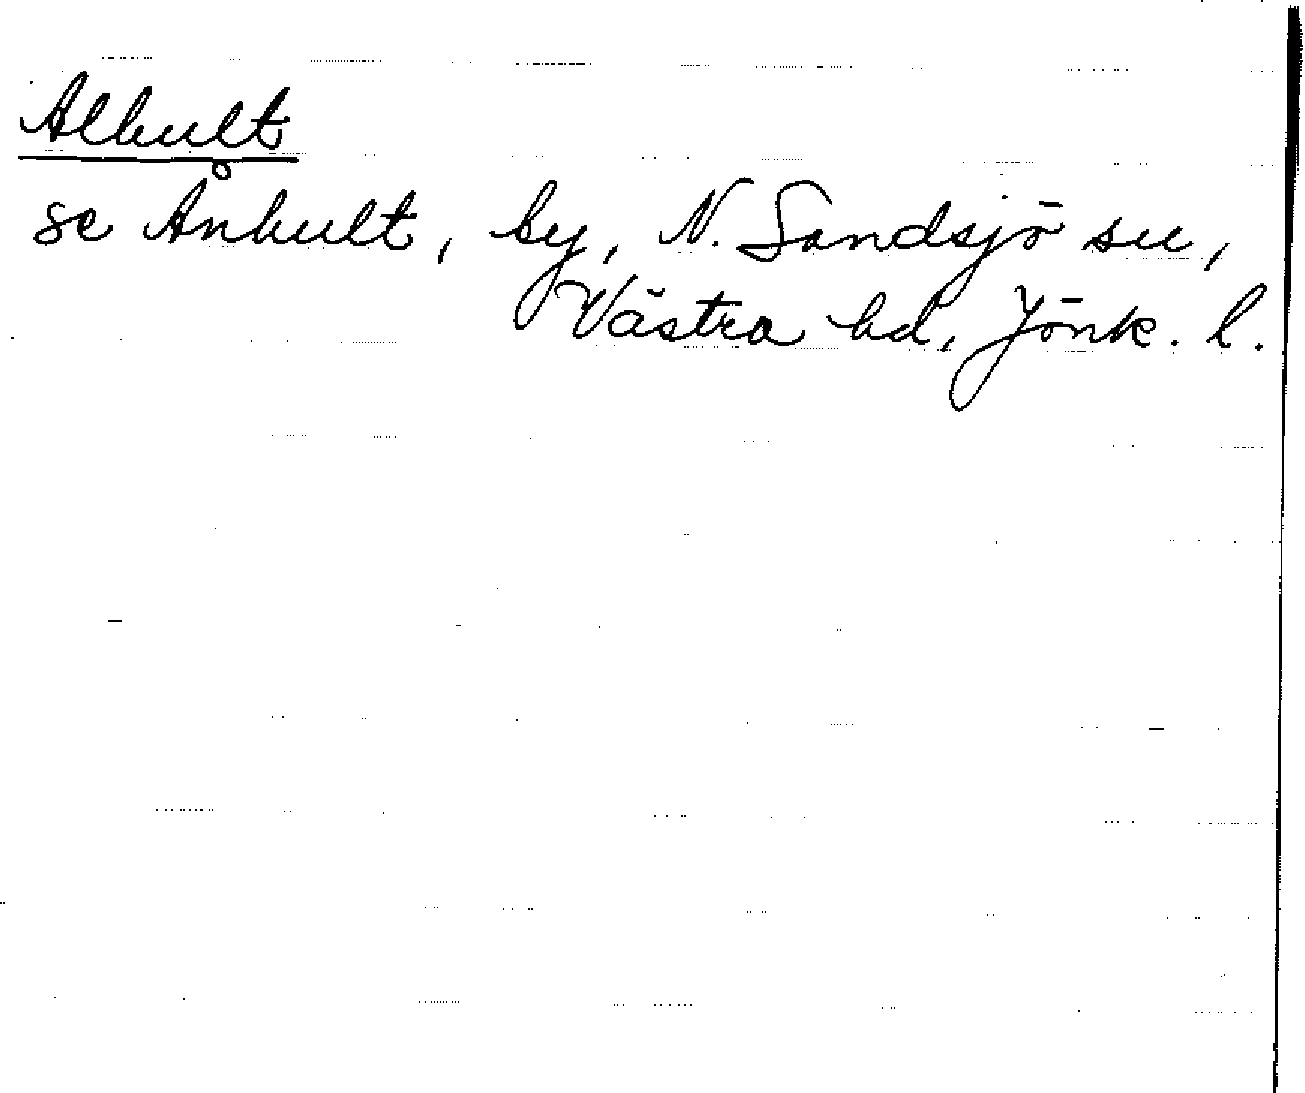 Alhult
se Ånhult, by, N. Sandsjö sn,
Västra hd, Jönk. l.